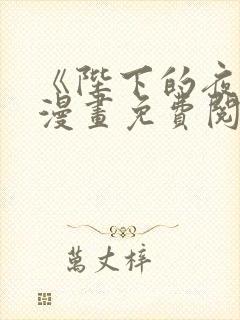 《陛下的夜
漫畫免費閱
萬丈梓